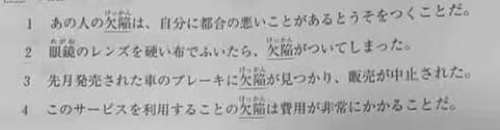 1 あの人の欠陥は、自分に都合の悪いことがあるとうそをつくことだ。
2 眼鏡のレンズを硬い布でふいたら、欠陥がついてしまった。
3 先月発売された車のブレーキに欠陥が見つかり、販売が中止された。
4 このサービスを利用することの欠陥は費用が非常にかかることだ。